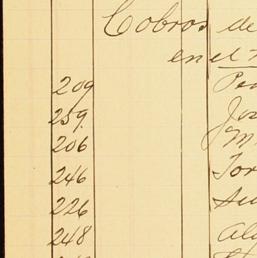 Cobros de
en el
209 Ped
259. Jos
206 M
246 Tor
226 Su
248 Al